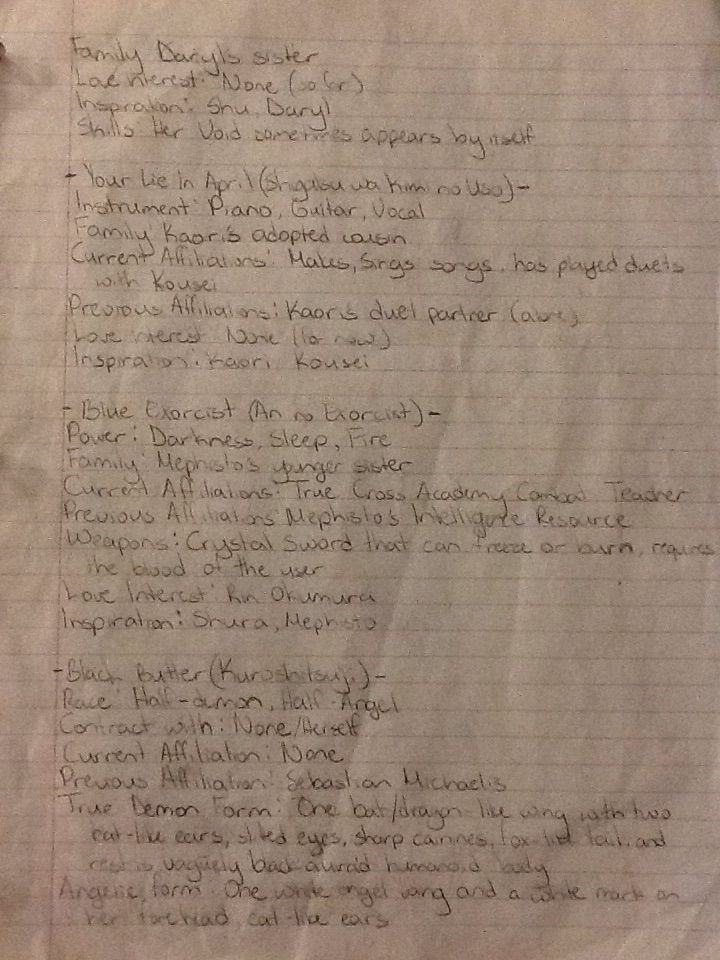 Family Daryl's sister
Love interest: None (so far)
Inspiration: Shu, Daryl
Skills: Her Void sometimes appears by itself
- Your Lie In April (Shigatsu wa Kimi no Uso) -
Instrument: Piano, Guitar, Vocal
Family Kaori's adopted cousin
Current Affiliations: Makes, Sings songs, has played duets
with Kousei
Previous Affiliations: Kaori's duet partner
Love interest None (for now)
Inspiration: Kaori Kousei
- Blue Exorcist (Ao no Exorcist) -
Power: Darkness, Sleep, Fire
Family: Mephisto's younger sister
Current Affiliations: True Cross Academy Combat Teacher
Previous Affiliations Mephisto's Resource
Weapons: Crystal Sword that can freeze or burn, requires
the blood of the user
Love Interest: Rin Okumura
Inspiration: Shura, Mephisto
- Black Butler (Kuroshitsuji) -
Race: Half-demon, Half-Angel
Contract with: None/Herself
Current Affiliation: None
Previous Affiliation: Sebastian Michaelis
True Demon Form: One bat/dragon-like wing with two
cat-like ears, slited eyes, sharp cannes, fox-like tail, and
rest is vaguely black humanoid body
Angelic form: One white angel wing and a white mark on
her forehead, cat-like ears